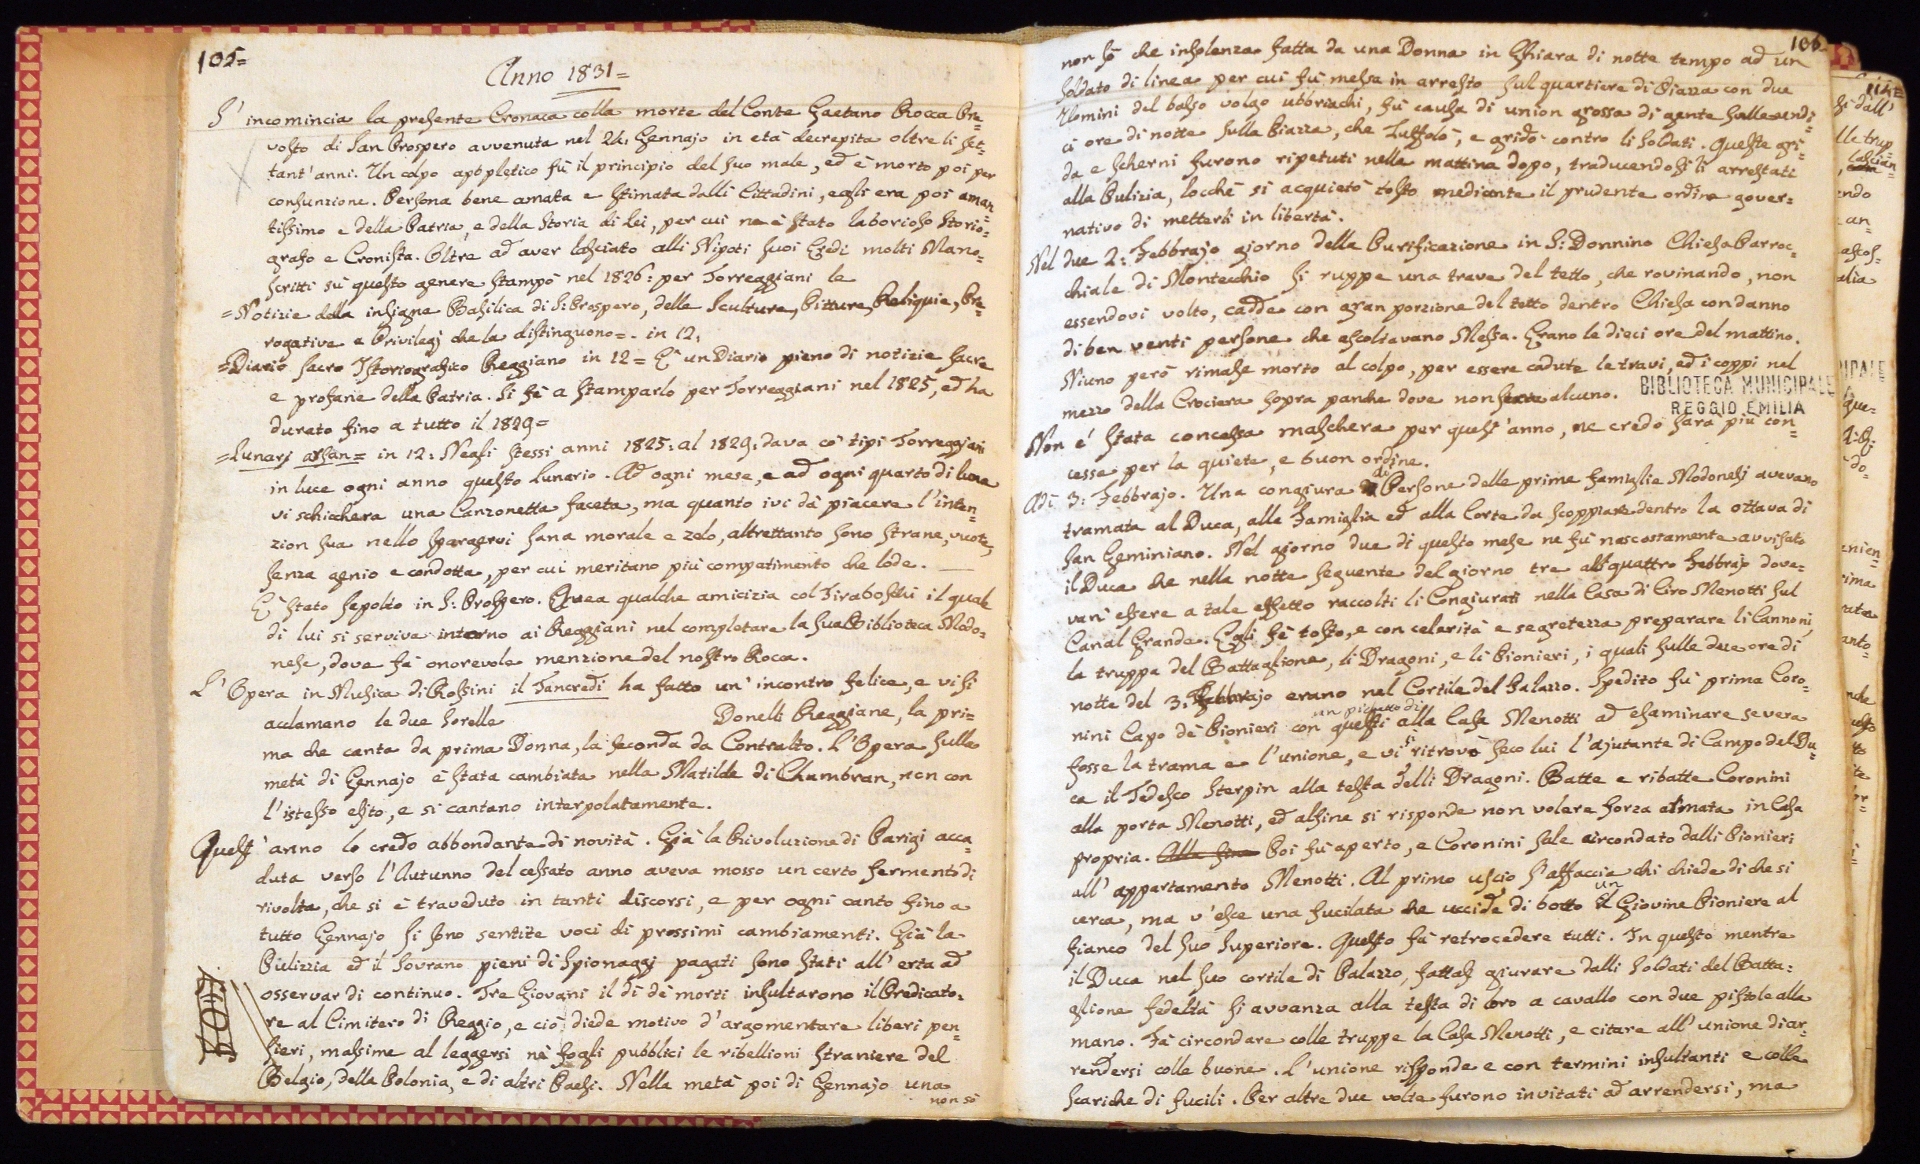 105=
Anno 1831=
S' incomincia la presente Cronaca colla morte del Conte Gaetano Rocca Pre=
vosto di San Prospero avvenuta nel 24, Gennajo in età decrepita oltre li set=
tant' anni. Un colpo apopletico fù il principio del suo male, ed è morto poi per
consunzione. Persona bene amata e stimata dalli Cittadini, egli era poi aman=
tissimo e della Patria, e della Storia di Lei, per cui ne è stato laborioso Storio=
grafo e Cronista. Oltre ad aver lasciato alli Nipoti suoi Eredi molti Mano=
scritti sù questo genere stampò nel 1826: per Torreggiani le
=Notizie della insigne Basilica di S: Prospero, delle Sculture, Pitture, Reliquie, Pre=
rogative e Privilegj che la distinguono=. in 12,
=Diario Sacro Istoriografico Reggiano in 12= È un Diario pieno di notizie sacre
e profane della Patria. Si fè a stamparlo per Torreggiani nel 1825, ed ha
durato fino a tutto il 1829=
=Lunarj in 12: Negli stessi anni 1825: al 1829: dava co' tipi Torreggiani
in luce ogni anno questo Lunario. Ad ogni mese, e ad ogni quarto di luna
vi schichera una Canzonetta faceta, ma quanto ivi dà piacere l' inten=
zion sua nello spargervi sana morale e zelo, altrettanto sono strane, vuote,
senza genio e condotta, per cui meritano più compatimento che lode.
È stato sepolto in S: Prospero. Avea qualche amicizia col Tiraboschi il quale
di lui si serviva intorno ai Reggiani nel completare la sua Biblioteca Modo=
nese, dove fà onorevole menzione del nostro Rocca.
L' Opera in Musica di Rossini il Tancredi ha fatto un' incontro felice, e vi si
acclamano le due sorelle Donelli Reggiane, la pri=
ma che canta da prima Donna, la seconda da Contralto. L' Opera sulla
metà di Gennajo è stata cambiata nella Matilde di Chambran, non con
l' istesso esito, e si cantano interpolatamente.
Quest' anno lo credo abbondante di novità. Già la Rivoluzione di Parigi acca=
duta verso l' Autunno del cessato anno aveva mosso un certo fermento di
rivolta, che si è traveduto in tanti discorsi, e per ogni canto fino a
tutto Gennajo si sono sentite voci di prossimi cambiamenti. Già la
Pulizzia ed il Sovrano pieni di Spionaggi pagati sono stati all' erta ad
osservar di continuo. Tre Giovani il dì de' morti insultarono il Predicato=
re al Cimitero di Reggio, e ciò diede motivo d' argomentare liberi pen=
sieri, massime al leggersi ne' fogli pubblici le ribellioni straniere del
Belgio, della Polonia, e di altri Paesi. Nella metà poi di Gennajo una
non so
106
non sò che insolenza fatta da una Donna in Ghiara di notte tempo ad un
Soldato di linea per cui fù messa in arresto sul quartiere di Piazza con due
Uomini del basso volgo utbriachi, fù causa di union grossa di gente sulle undi=
ci ore di notte sulla Piazza, che sussolò, e gridò contro li Soldati. Queste gri=
da e scherni furono ripetuti nella mattina dopo, traducendosi li arrestati
alla Pulizia, locchè si acquietò tosto mediante il prudente ordine gover=
nativo di metterli in libertà.
Nel due 2: Febbrajo giorno della Purificazione in S: Donnino Chiesa Parroc=
chiale di Montecchio si ruppe una trave del tetto, che rovinando, non
essendovi volto, cadde con gran porzione del tetto dentro Chiesa con danno
di ben venti persone che ascoltavano Messa. Erano le dieci ore del mattino.
Niuno però rimase morto al colpo, per essere cadute le travi, ed i coppi nel
mezzo della Crociera sopra panche dove non alcuno.
BIBLIOTECA MUNICIPALE
REGGIO EMILIA
Non è stata concessa maschera per quest' anno, ne credo sarà più con=
cesse per la quiete, e buon ordine.
Adì 3: Febbrajo. Una congiura di Persone delle prime famiglie Modonesi avevano
tramata al Duca, alla Famiglia ed alla Corte da scoppiare dentro la ottava di
San Geminiano. Nel giorno due di questo mese ne fù nascostamente avvisato
il Duca che nella notte seguente del giorno tre alli quattro Febbrajo dove=
van' essere a tale effetto raccolti li Congiurati nella Casa di Ciro Menotti sul
Canal Grande. Egli fè tosto, e con celerità e segretezza preparare li Cannoni,
la truppa del Battaglione, li Dragoni, e li Pionieri, i quali sulle due ore di
notte del 3: Febbrajo erano nel Cortile del Palazzo. Spedito fù prima Coro=
nini Capo de' Pionieri con un pichetto di questi alla Casa Menotti ad esaminare se vera
fosse la trama e l' unione, e vi si ritrovò seco lui l' ajutante di Campo del Du=
ca il Tedesco Sterpin alla testa delli Dragoni. Batte e ribatte Coronini
alla porta Menotti, ed alfine si risponde non volere forza armata in Casa
propria. Alla fine Poi fù aperto, e Coronini sale circondato dalli Pionieri
all' appartamento Menotti. Al primo uscio s' affaccia chi chiede di che si
cerca, ma v' esce una fucilata che uccide di botto un Giovine Pioniere al
fianco del suo Superiore. Questo fà retrocedere tutti. In questo mentre
il Duca nel suo cortile di Palazzo, fattasi giurare dalli Soldati del Batta=
glione fedeltà si avvanza alla testa di loro a cavallo con due pistole alla
mano. Fà circondare colle truppe la Casa Menotti, e citare all' unione di ar=
rendersi colle buone. L' unione risponde e con termini insultanti e colle
scariche di fucili. Per altre due volte furono invitati ad arrendersi, ma